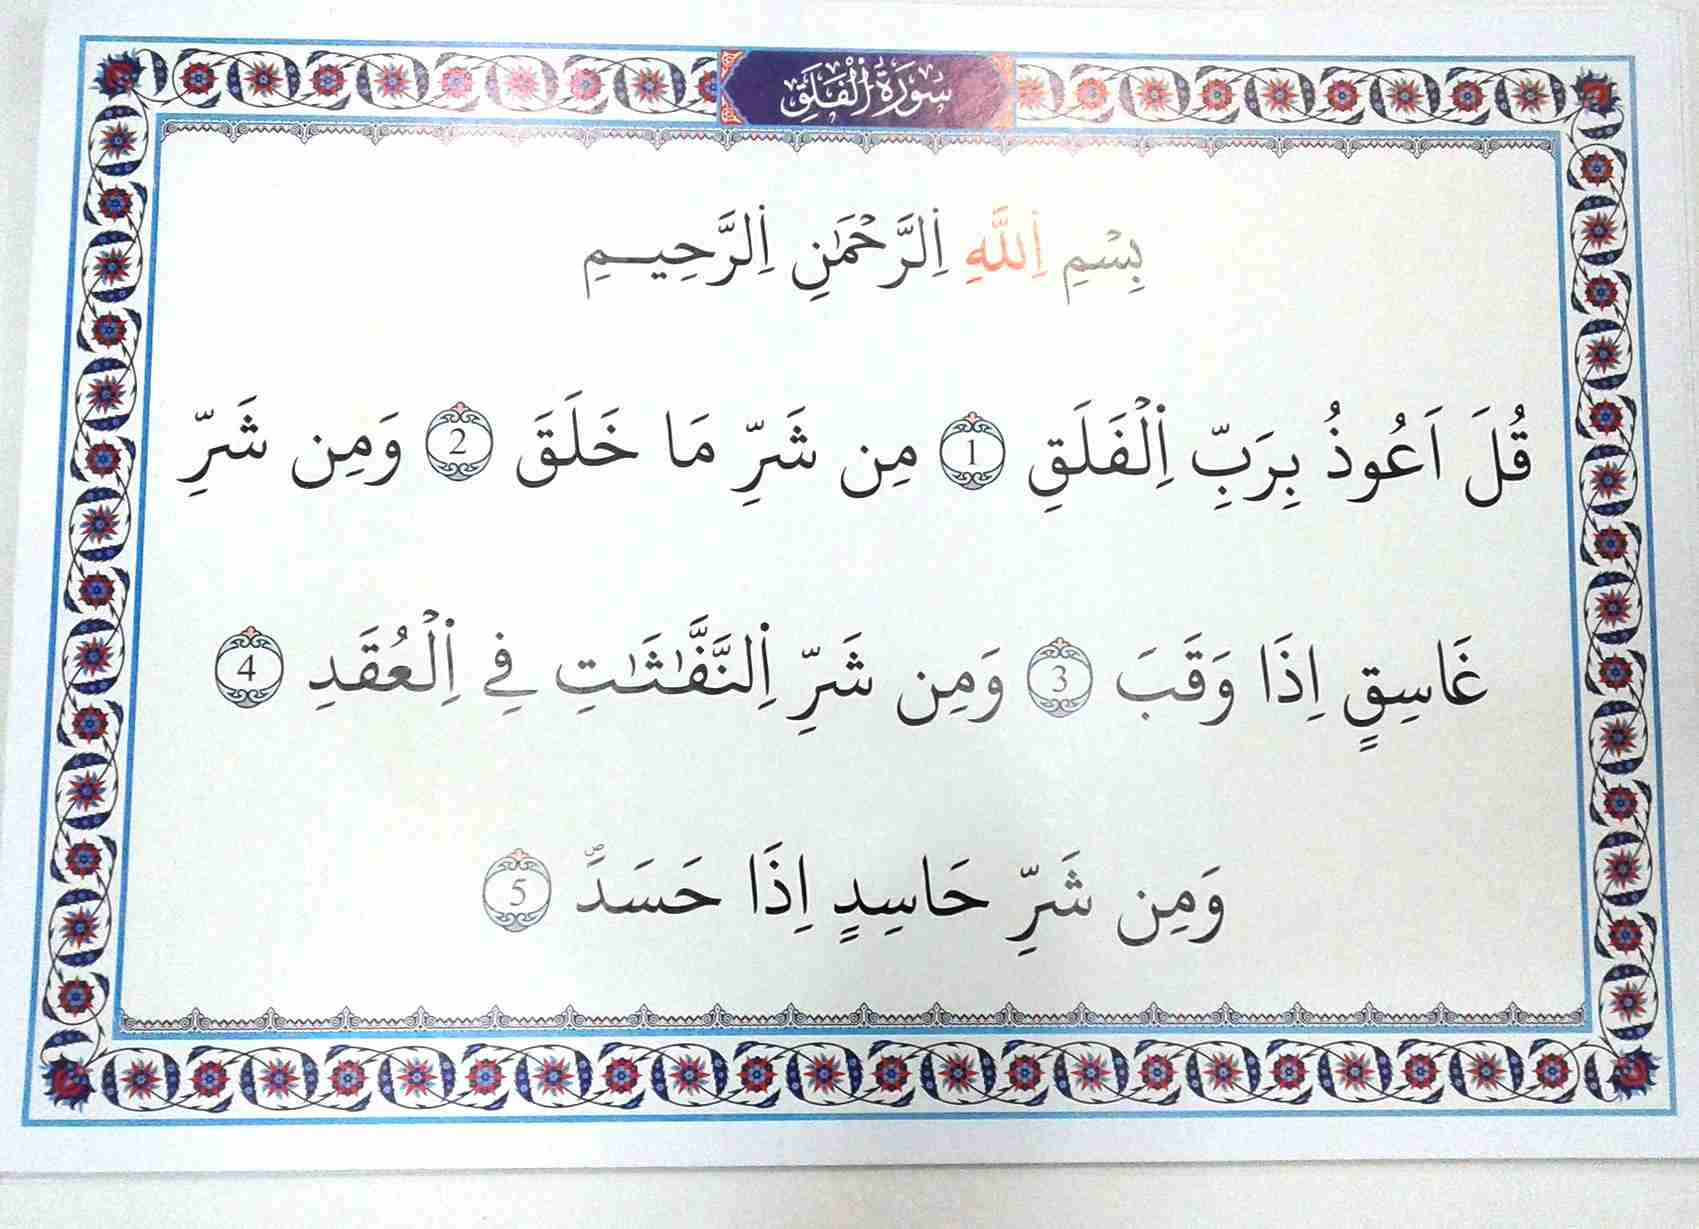 سُورَةُ الْفَلَقِ
بِسْمِ اِ۬للَّهِ اِ۬لرَّحْمَٰنِ اِ۬لرَّحِيمِ
قُلَ اَعُوذُ بِرَبِّ اِ۬لْفَلَقِ 1 مِن شَرِّ مَا خَلَقَ 2 وَمِن شَرِّ
غَاسِقٍ اِذَا وَقَبَ 3 وَمِن شَرِّ اِ۬لنَّفَّٰثَٰتِ فِے اِ۬لْعُقَدِ 4
وَمِن شَرِّ حَاسِدٍ اِذَا حَسَدَۖ 5